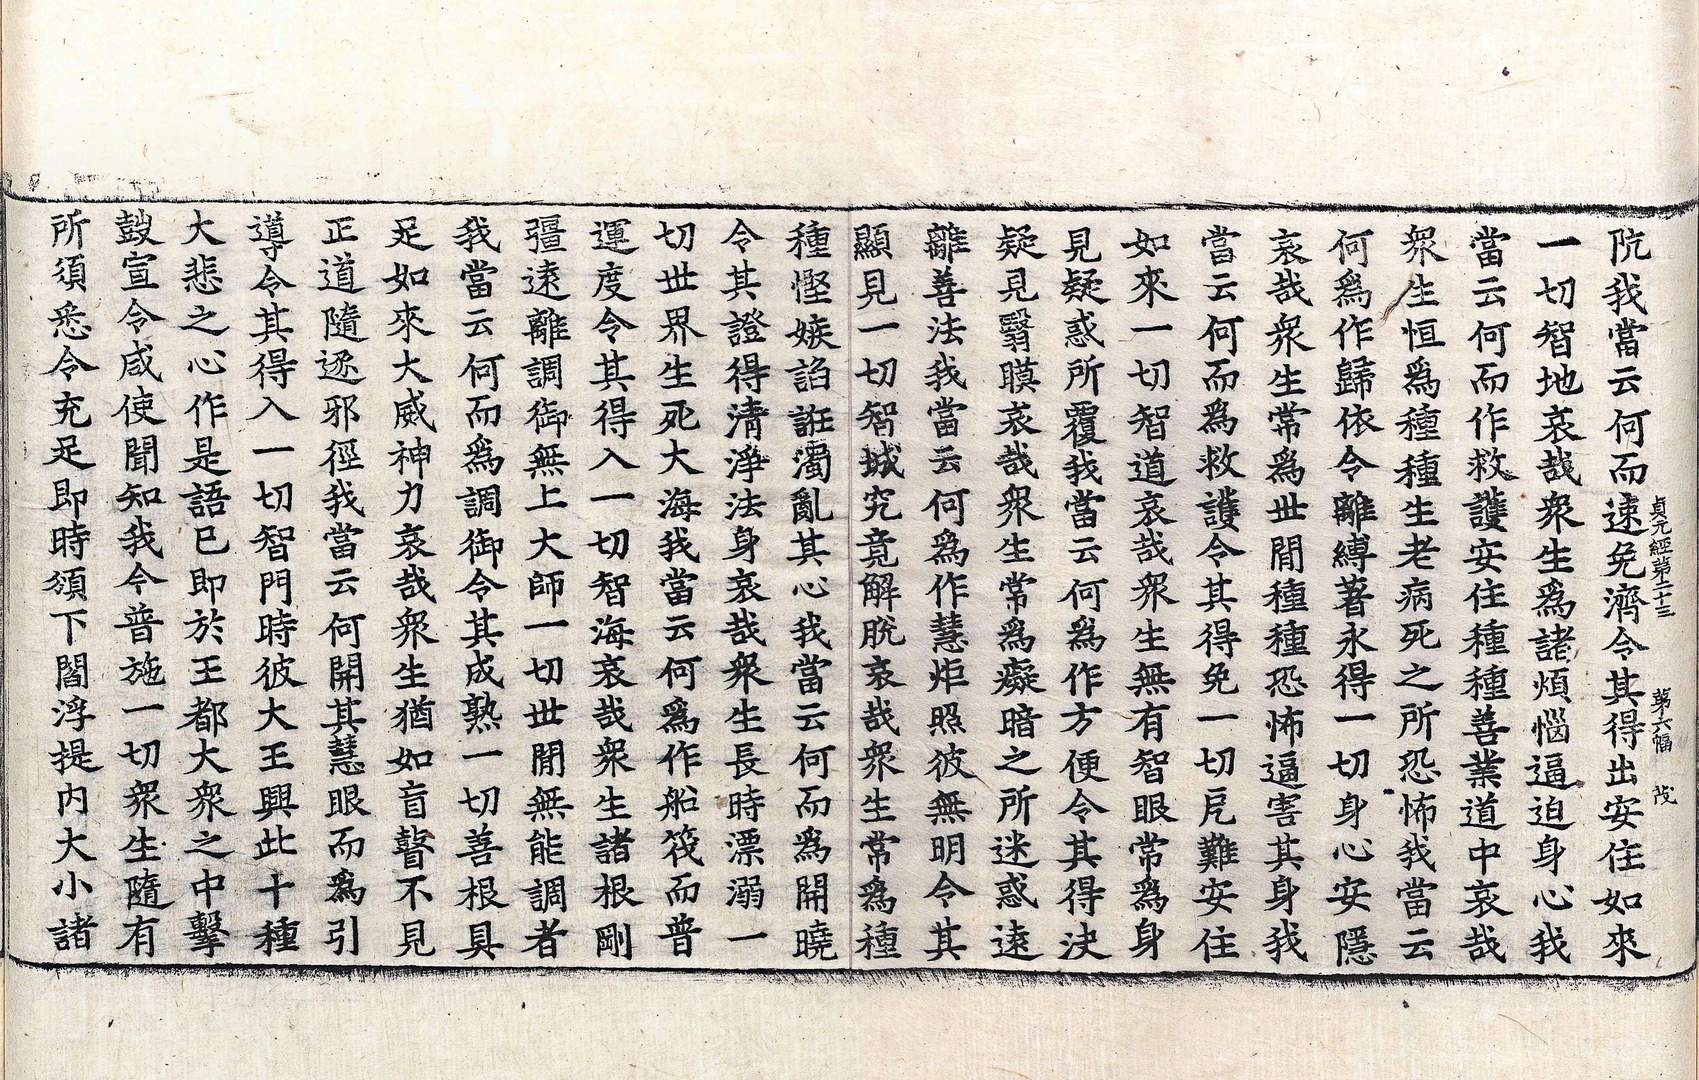 貞元經第二十三　第六幅　茂
阬我當云何而速免濟令其得出安住如來
一切智地哀哉衆生爲諸煩惱逼迫身心我
當云何而作救護安住種種善業道中哀哉
衆生恒爲種種生老病死之所恐怖我當云
何爲作歸依令離縛著永得一切身心安隱
哀哉衆生常爲世間種種恐怖逼害其身我
當云何而爲救護令其得免一切戹難安住
如來一切智道哀哉衆生無有智眼常爲身
見疑惑所覆我當云何爲作方便令其得決
疑見翳瞙哀哉衆生常爲癡暗之所迷惑遠
離善法我當云何爲作慧炬照彼無明令其
顯見一切智城究竟解脫哀哉衆生常爲種
種慳嫉諂誑濁亂其心我當云何而爲開曉
令其證得清淨法身哀哉衆生長時漂溺一
切世界生死大海我當云何爲作船筏而普
運度令其得入一切智海哀哉衆生諸根剛
彊遠離調御無上大師一切世間無能調者
我當云何而爲調御令其成熟一切善根具
足如來大威神力哀哉衆生猶如盲瞽不見
正道隨逐邪徑我當云何開其慧眼而爲引
導令其得入一切智門時彼大王興此十種
大悲之心作是語已即於王都大衆之中擊
鼓宣令咸使聞知我今普施一切衆生隨有
所須悉令充足即時頒下閻浮提內大小諸